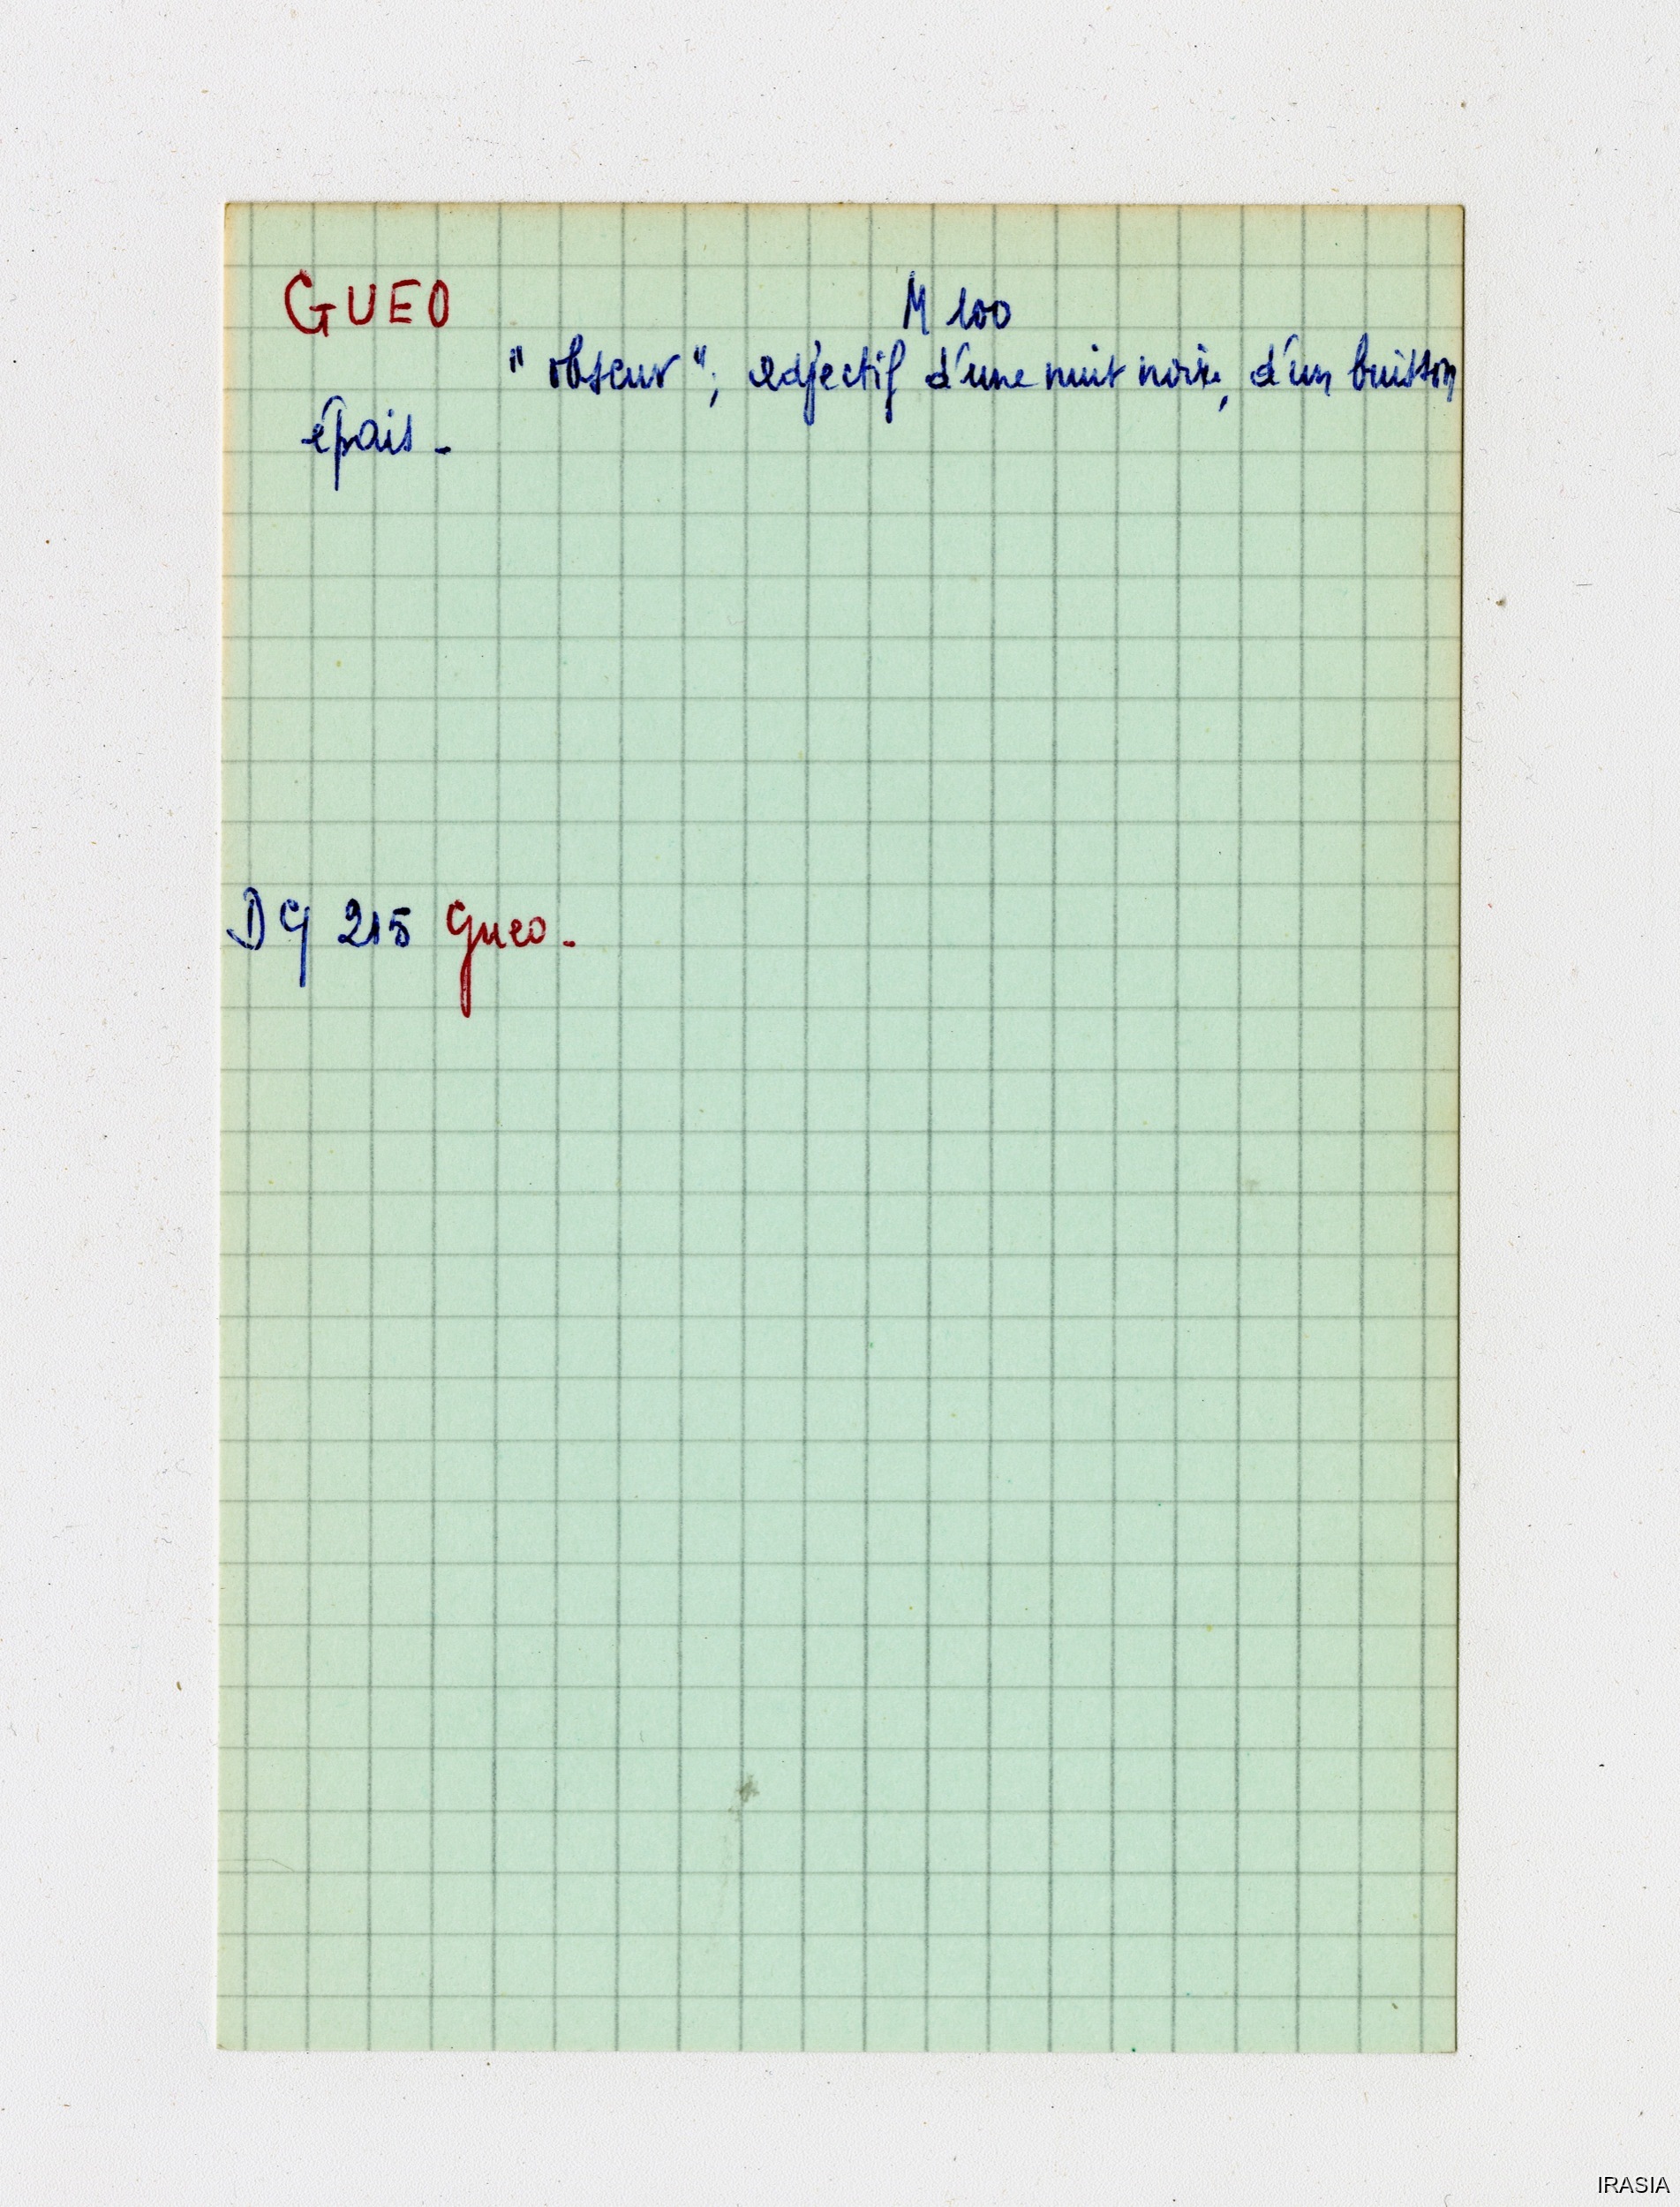 GUEO M 100
"obscur"; adjectif d'une nuit noire, d'un buisson
épais -
DG 215 Gueo -
IRASIA